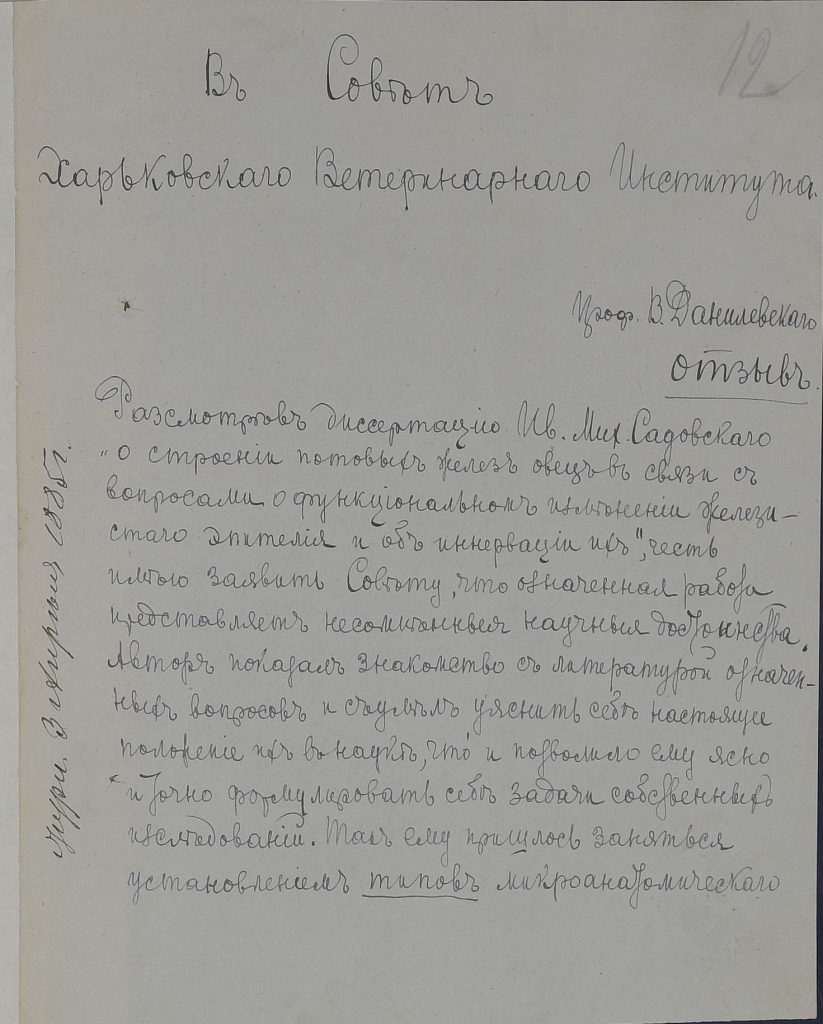 12
Въ Совѣтъ
Харьковскаго Ветеринарнаго Института.
Проф. В. Данилевскаго
Отзывъ.
Разсмотрѣвъ диссертацію Ив. Мих. Садовскаго
"о строеніи потовыхъ железъ овецъ въ связи съ
вопросами о функціональномъ измѣненіи желези-
стаго эпителія и объ иннерваціи ихъ", честь
имѣю заявить Совѣту, что означенная работа
представляетъ несомнѣнныя научныя достоинства.
Авторъ показалъ знакомство съ литературой означен-
ныхъ вопросовъ и съумѣлъ уяснить себѣ настоящее
положеніе ихъ въ наукѣ, что и позволило ему ясно
и точно формулировать себѣ задачи собственныхъ
изслѣдованій. Такъ ему пришлось заняться
установленіемъ типовъ микроанатомическаго
журн. 3 апрѣля 1885 г.